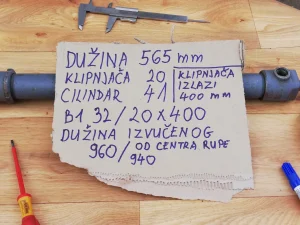 DUŽINA 565 mm
KLIPNJAČA 20
CILINDAR 41
KLIPNJAČA
IZLAZI
400 mm
B1 32/20x400
DUŽINA IZVUČENOG
960/ OD CENTRA RUPE
940